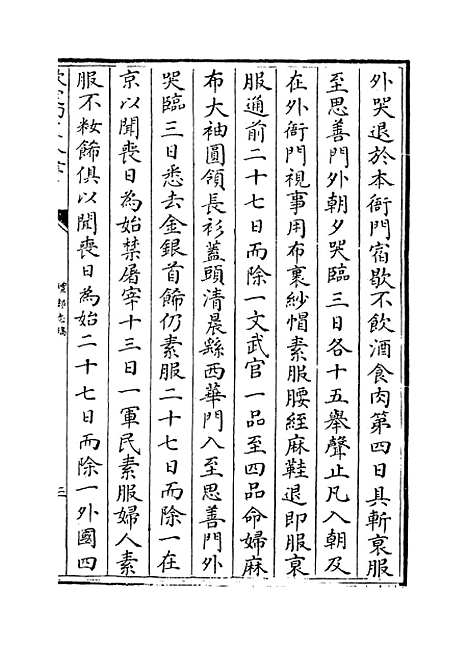 外哭退於本衙門宿歇不飲酒食肉第四日具斬衰服
至思善門外朝夕哭臨三日各十五舉聲止凡入朝及
在外衙門視事用布裹紗帽素服腰絰麻鞋退即服衰
服通前二十七日而除一文武官一品至四品命婦麻
布大袖圓領長衫蓋頭清晨縣西華門入至思善門外
哭臨三日悉去金銀首飾仍素服二十七日而除一在
京以聞喪日為始禁屠宰十三日一軍民素服婦人素
服不妝飾俱以聞喪日為始二十七日而除一外國四
禮部志稿
三